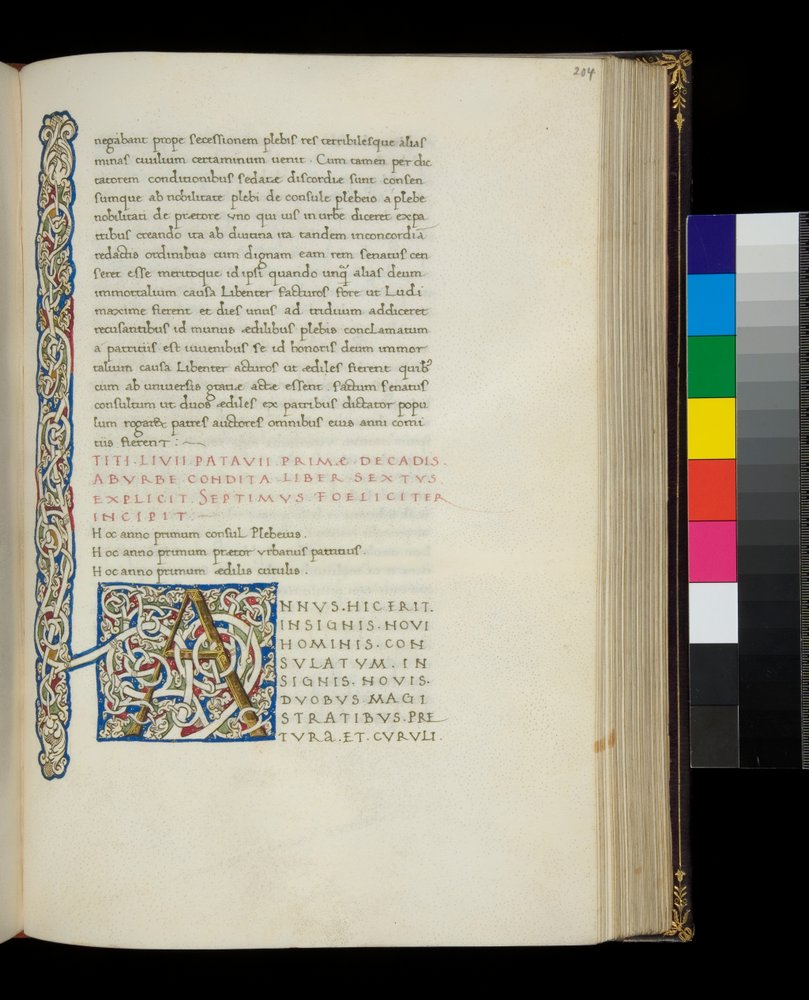 204
negabant prope secessionem plebis res terribilesque alias
minas ciuilium certaminum uenit. Cum tamen per dic
tatorem conditionibus sedatæ discordiæ sunt concen
sumque ab nobilitate plebi de consule plebeio a plebe
nobilitati de prætore vno qui ius in urbe diceret ex pa
tribus creando ita ab diutina ira tandem in concordiā
redactis ordinibus cum dignam eam rem senatus cen
seret esse meritoque id ipsi quando unq̄ alias deum
immortalium causa Libenter facturos fore ut Ludi
maxime fierent et dies unus ad triduum addiceret
recusantibus id munus ædilibus plebis conclamatum
a patritiis est iuuenibus se id honoris deum immor
talium causa Libenter acturos ut ædiles fierent quibꝫ
cum ab universis gratiæ actæ essent. factum senatus
consultum ut duos ædiles ex patribus dictator popu
lum rogaret patres auctores omnibus eius anni comi
tiis fierent:
TITI.LIVII PATAVII PRIMÆ DECADIS.
ABVRBE CONDITA LIBER SEXTVS.
EXPLICIT. SEPTIMVS FOELICITER
INCIPIT.
Hoc anno primum consul Plebeius.
Hoc anno primum prætor vrbanus patritius.
Hoc anno primum ædilis curulis.
ANNVS.HIC ERIT.
INSIGNIS.NOVI
HOMINIS.CON
SVLATVM.IN
SIGNIS.NOVIS.
DVOBVS.MAGI
STRATIBVS.PRE
TVRA.ET.CVRVLI.